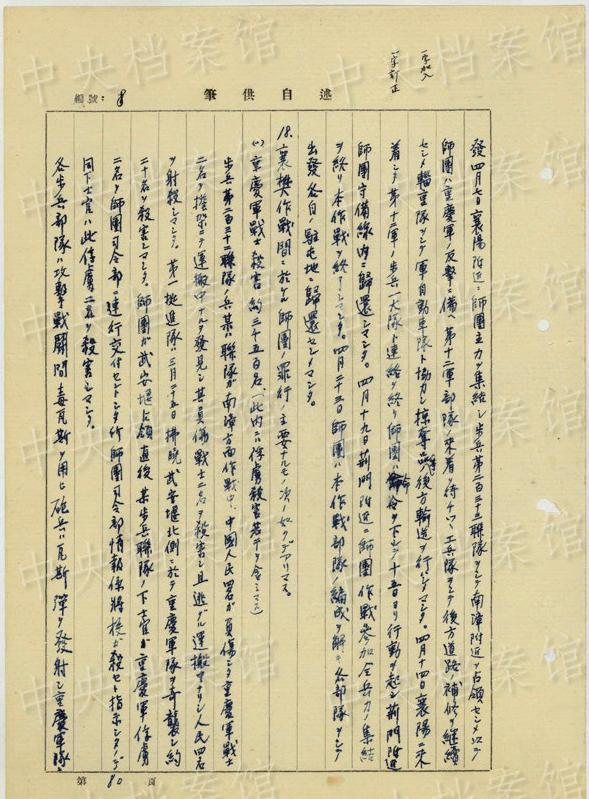 述自供筆
編號：8
一字加入
一字訂正
發四月七日襄陽附近ニ師團主力ヲ集結シ歩兵第二百三十三聯隊ヲシテ南漳附近ヲ占領セシメ以テ
師團ハ重慶軍ノ反撃ニ備ヘ第十二軍部隊ノ來着ヲ待チツヽ工兵隊ヲシテ後方道路ノ補修ヲ継續
セシメ輜重隊ヲシテ軍自動車隊ト協力シ掠奪品ノ後方輸送ヲ行ハシマシタ。四月十四日襄陽ニ來
着シタ第十二軍ノ歩兵一大隊ト連絡ヲ終リ師團ハ命令ヲ下シテ十五日ヨリ行動ヲ起シ荊門附近
師團守備線内ニ歸還シマシタ。四月十九日荊門附近ニ師團作戰参加全兵力ノ集結
ヲ終リ本作戰ヲ終リマシタ。四月二十三日師團ハ本作戰部隊ノ編成ヲ解キ各部隊ヲシテ
出發各自ノ駐屯地ニ歸還セシメマシタ。
18.襄樊作戰間ニ於ケル師團ノ罪行ノ主要ナルモノ次ノ如クデアリマス。
(一)重慶軍戰士殺害約三百五十名(此内ニハ俘虜殺害若干ヲ含ミマス)
歩兵第二百三十二聯隊ノ兵某ハ聯隊ガ南漳方面作戰中、中國人民四名ガ負傷シタ重慶軍戰士
二名ヲ擔架ニテ運搬中ナルヲ發見シ其負傷戰士二名ヲ殺害シ且逃ゲル運搬中ナリシ人民四名
ヲ射殺シマシタ。第一挺進隊ハ三月二十五日拂曉武安堰北側ニ於テ重慶軍部隊ヲ奇襲シ約
二十名ヲ殺害シマシタ。師團ガ武安堰占領直後某歩兵聯隊ノ下士官ガ重慶軍俘虜
二名ヲ師團司令部ニ連行交付セントシタ所師團司令部情報係將校ガ殺セト指示シタノデ
同下士官ハ此俘虜二名ヲ殺害シマシタ。
各歩兵部隊ハ攻撃戰鬪間毒瓦斯ヲ用ヒ砲兵ハ瓦斯弾ヲ發射シ重慶軍部隊ニ
第80頁
中央档案馆